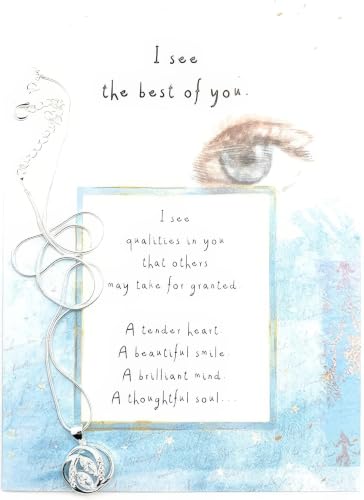 I see
the best of you.
I see
qualities in you
that others
may take for granted.
A tender heart.
A beautiful smile.
A brilliant mind.
A thoughtful soul...